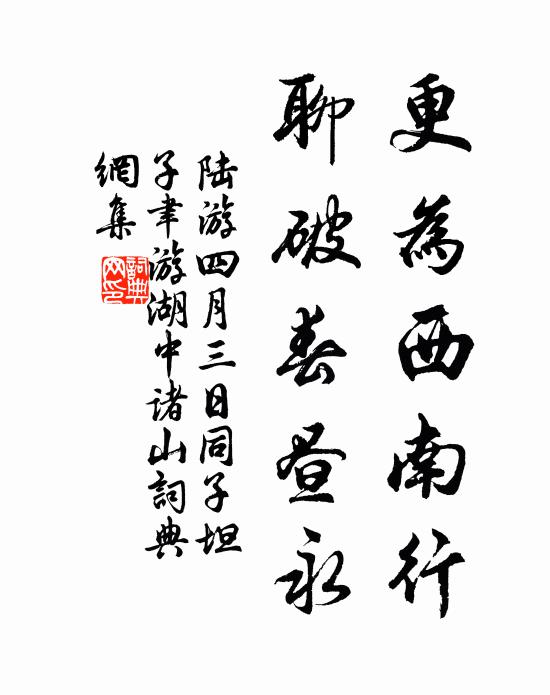 更為西南行
聊破春昼永
陆游四月三日同子坦
子聿游湖中诸山詞典
網集
詞典
网印